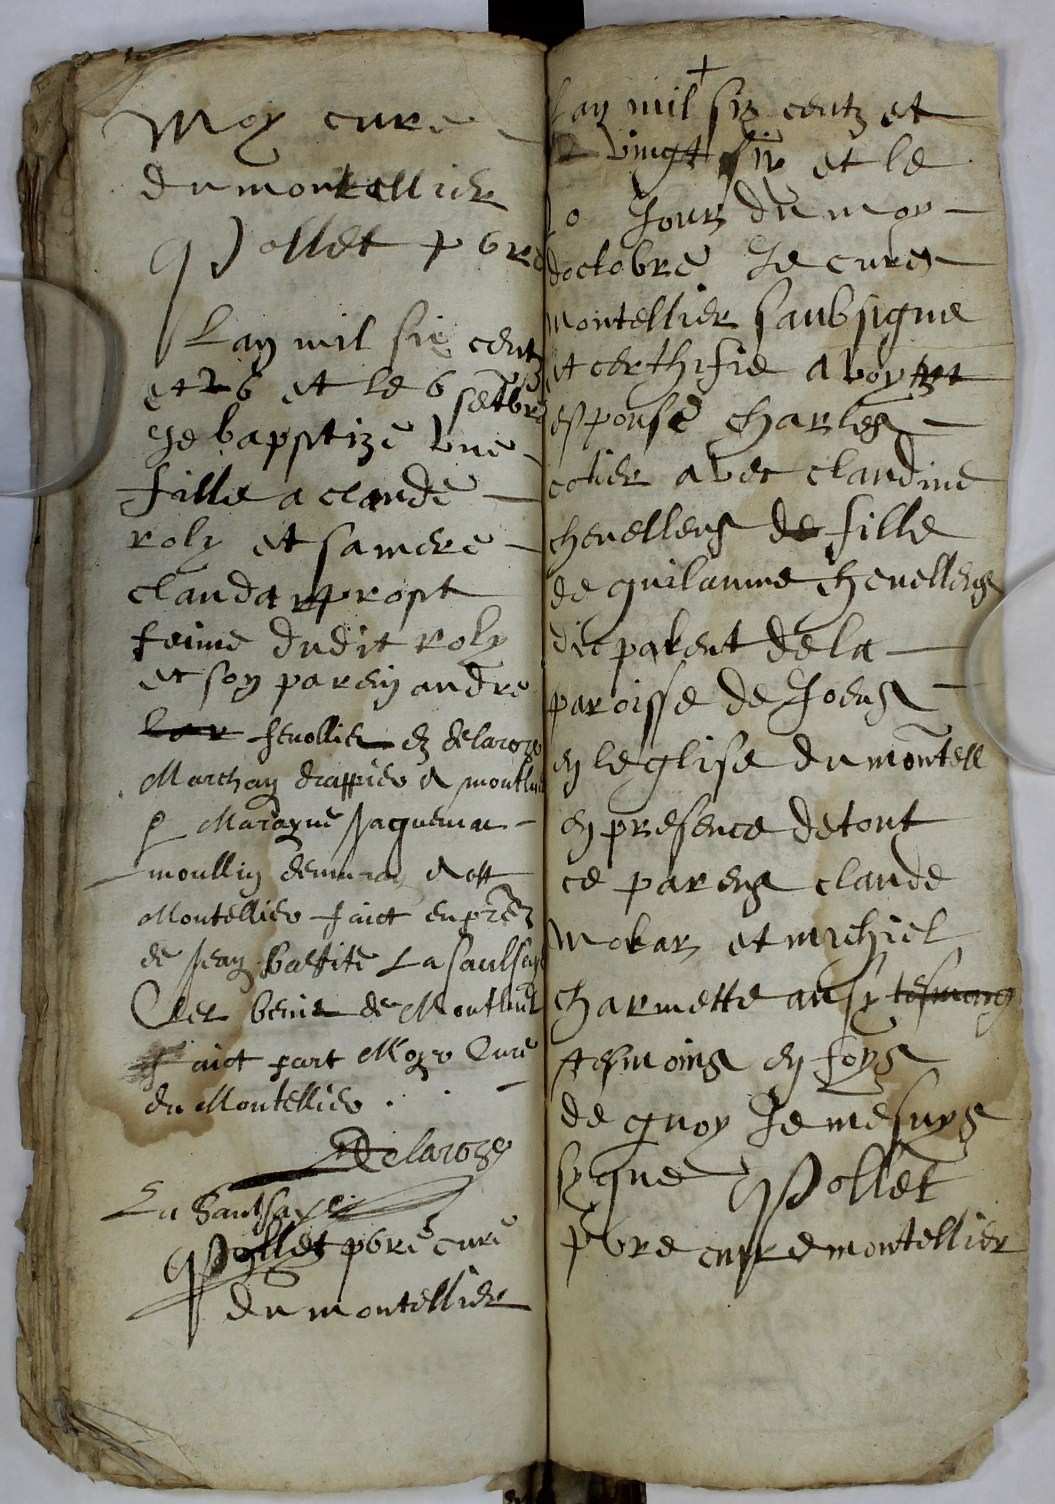 Moy cure
du montellier
Pollet pbre
Lan mil six centz
et 26 et le 6 septbre
Je baptize une
fille a claude
roly et sa mere
clauda prost
feime dudit roly
et son parein andre
fenollie de laroze
Marchan drappier a montluel
Marayne Jaquema
moullin a
Montellier faict en
de Jean Battite La Saulsaye
de Montluel
faict part Moy Cure
du Montellier .
Delaroze
La Saulsaye
Pollet pbre cure
du montellier
+
Lan mil six centz et
vingt six et le
Jour du moy
doctobre Je cure
montellier soubsigne
et certhifie avoyr
espouse charles
avec claudine
chevellens de fille
de guilaume chevellens
parent de la
paroisse de Joens
en leglise du montell
en presence de tout
ce parens claude
mokar et michiel
charmette ausy tesmoing
tesmoins en foys
de quoy Je me suys
sygne Pollet
pbre cure montellier